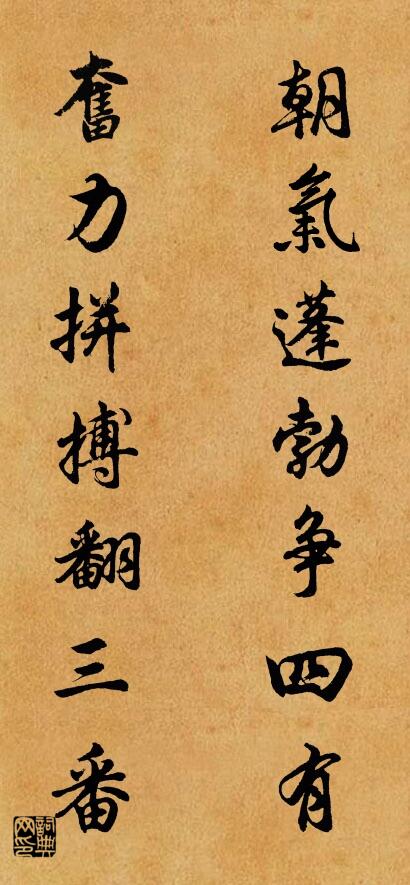 朝氣蓬勃争四有
奮力拼搏翻三番
詞典网印